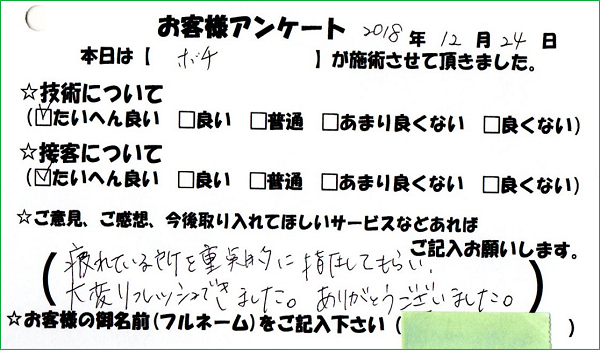 お客様アンケート 2018年 12月 24日
本日は【 ボチ 】が施術させて頂きました。
☆技術について
(☑たいへん良い □良い □普通 □あまり良くない □良くない)
☆接客について
(☑たいへん良い □良い □普通 □あまり良くない □良くない)
☆ご意見、ご感想、今後取り入れてほしいサービスなどあれば
ご記入お願いします。
(疲れている所を重点的に指圧してもらい、
大変リフレッシュできました。ありがとうございました。)
☆お客様の御名前(フルネーム)をご記入下さい( )